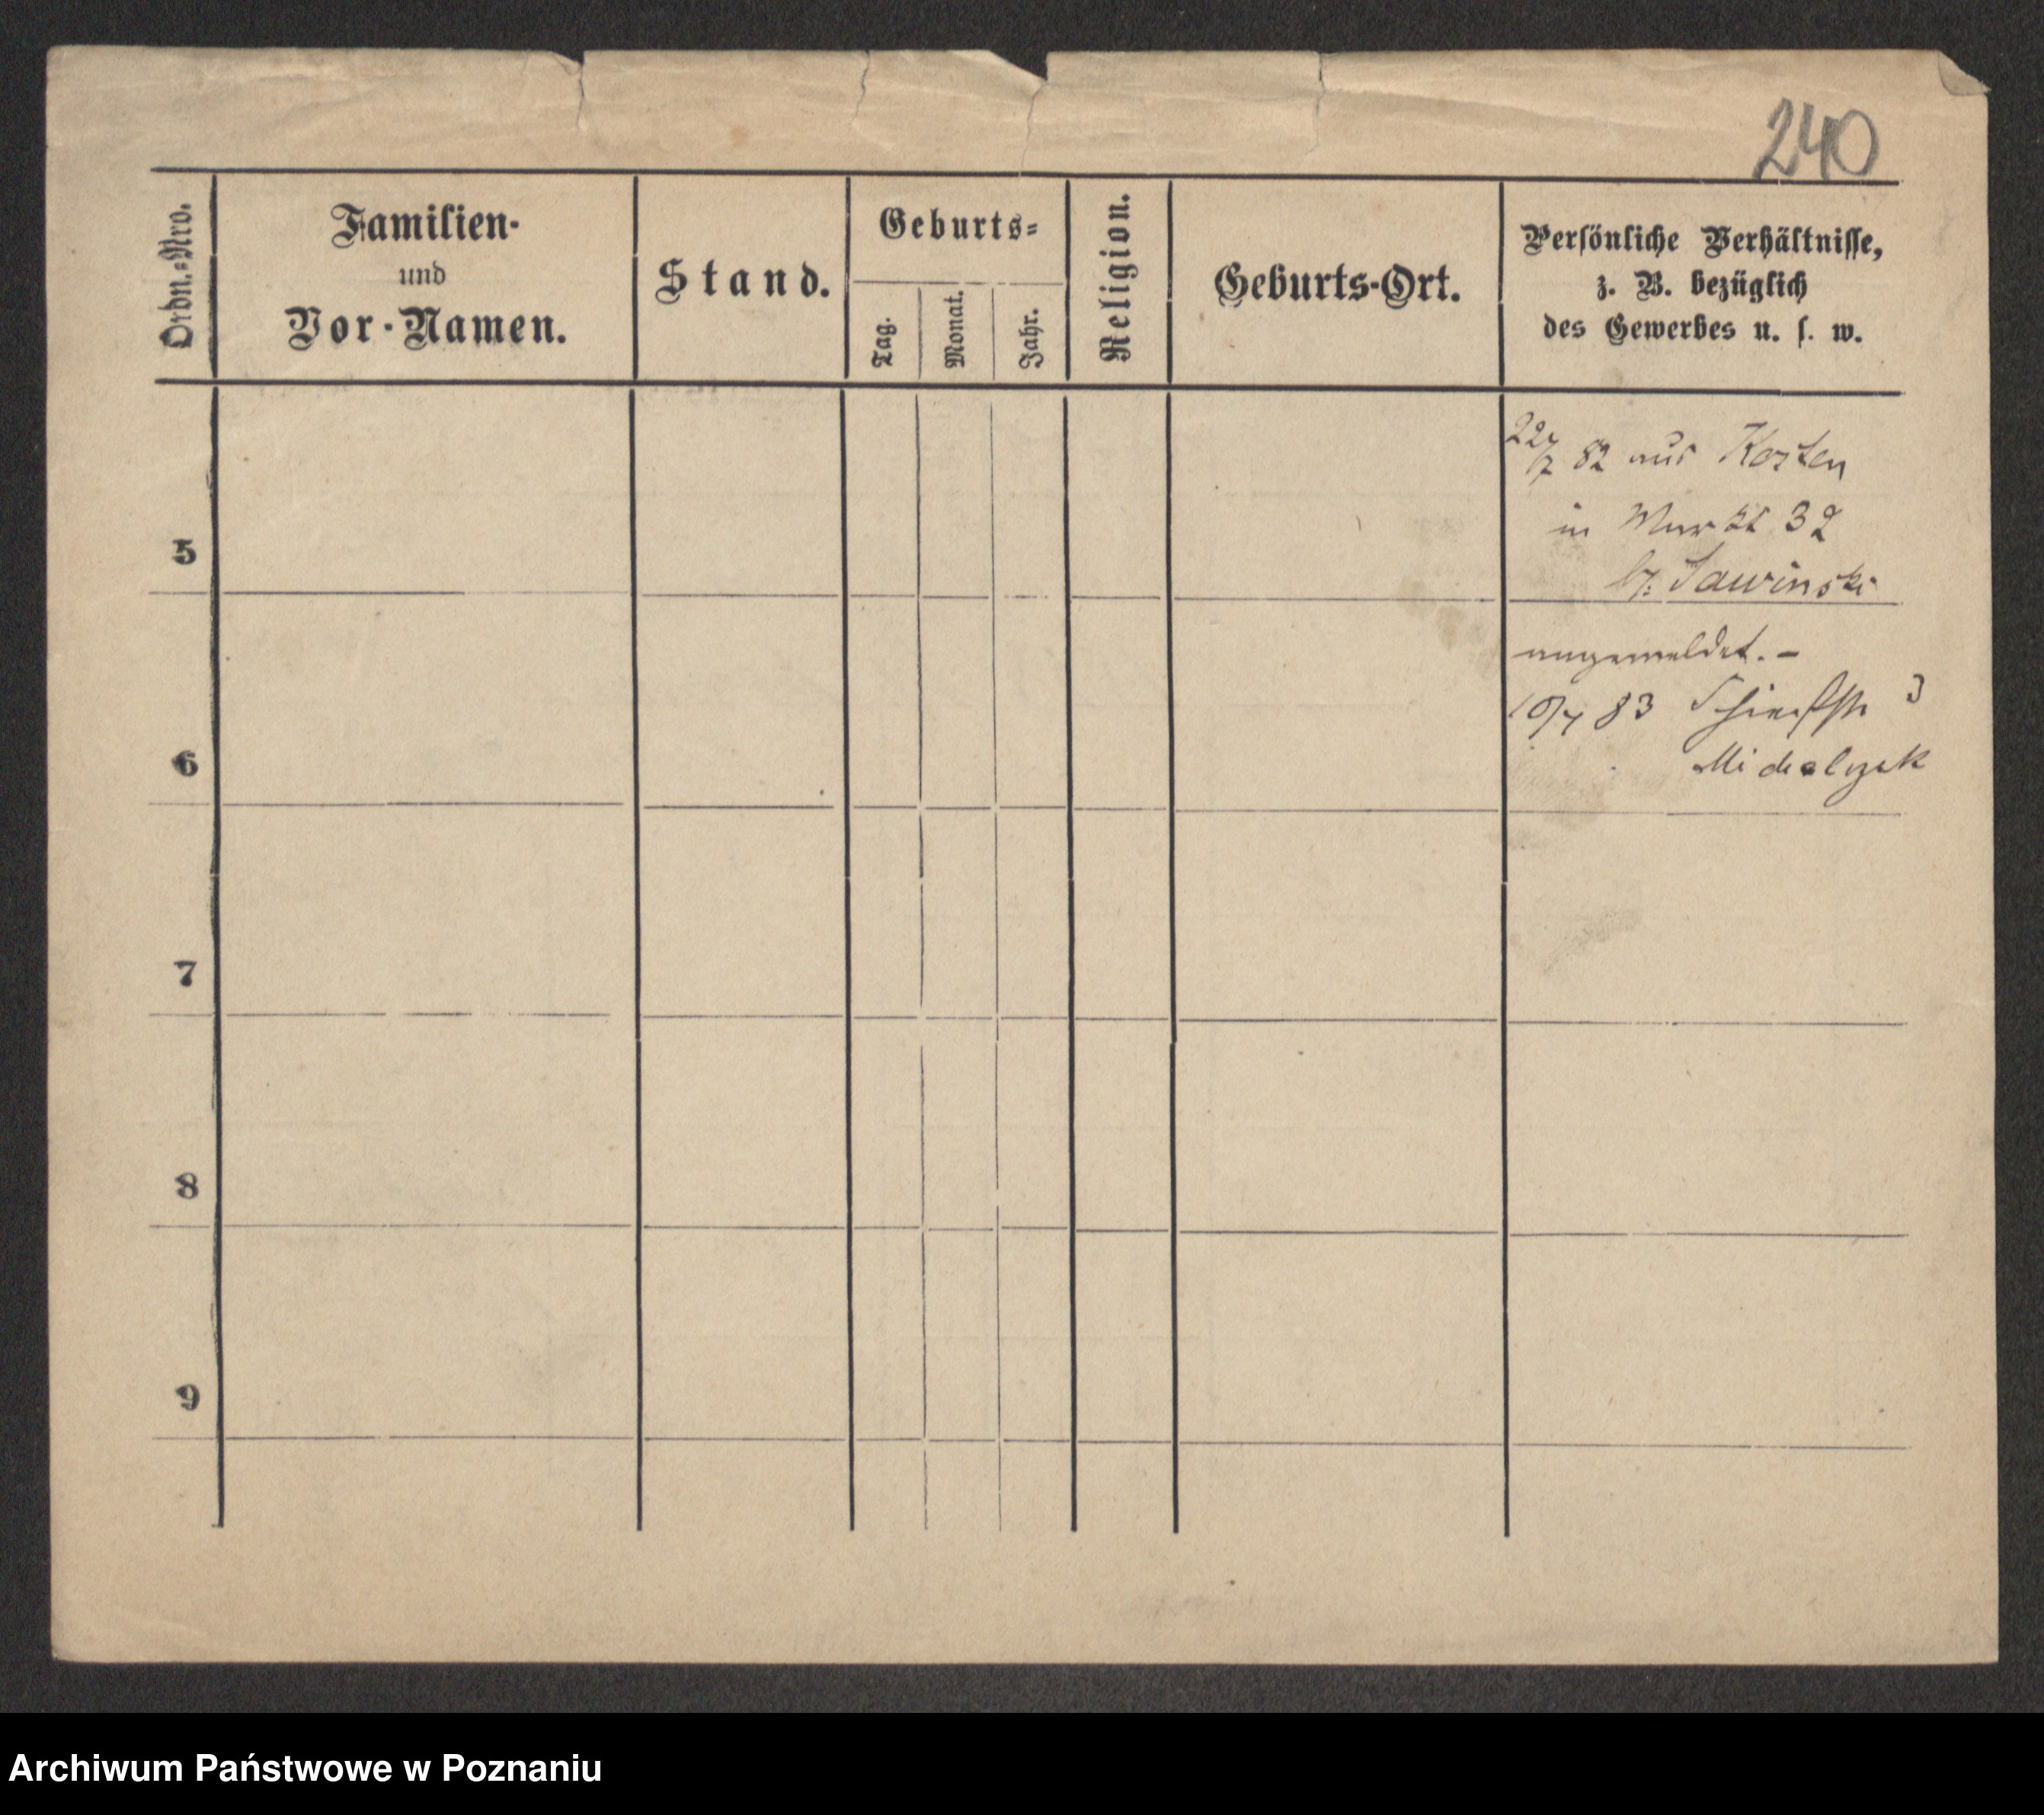 240
Ordn.-Nro.
Familien-
und
Vor-Namen.
Stand.
Geburts-
Tag.
Monat.
Jahr.
Religion.
Geburts-Ort.
Persönliche Verhältnisse,
z. B. bezüglich
des Gewerbes u. s. w.
22/7 82 aus Kosten
in Markt 32
b/: Sawinski
5
angemeldet. -
10/4 83 3
Michalczak
6
7
8
9
Archiwum Państwowe w Poznaniu